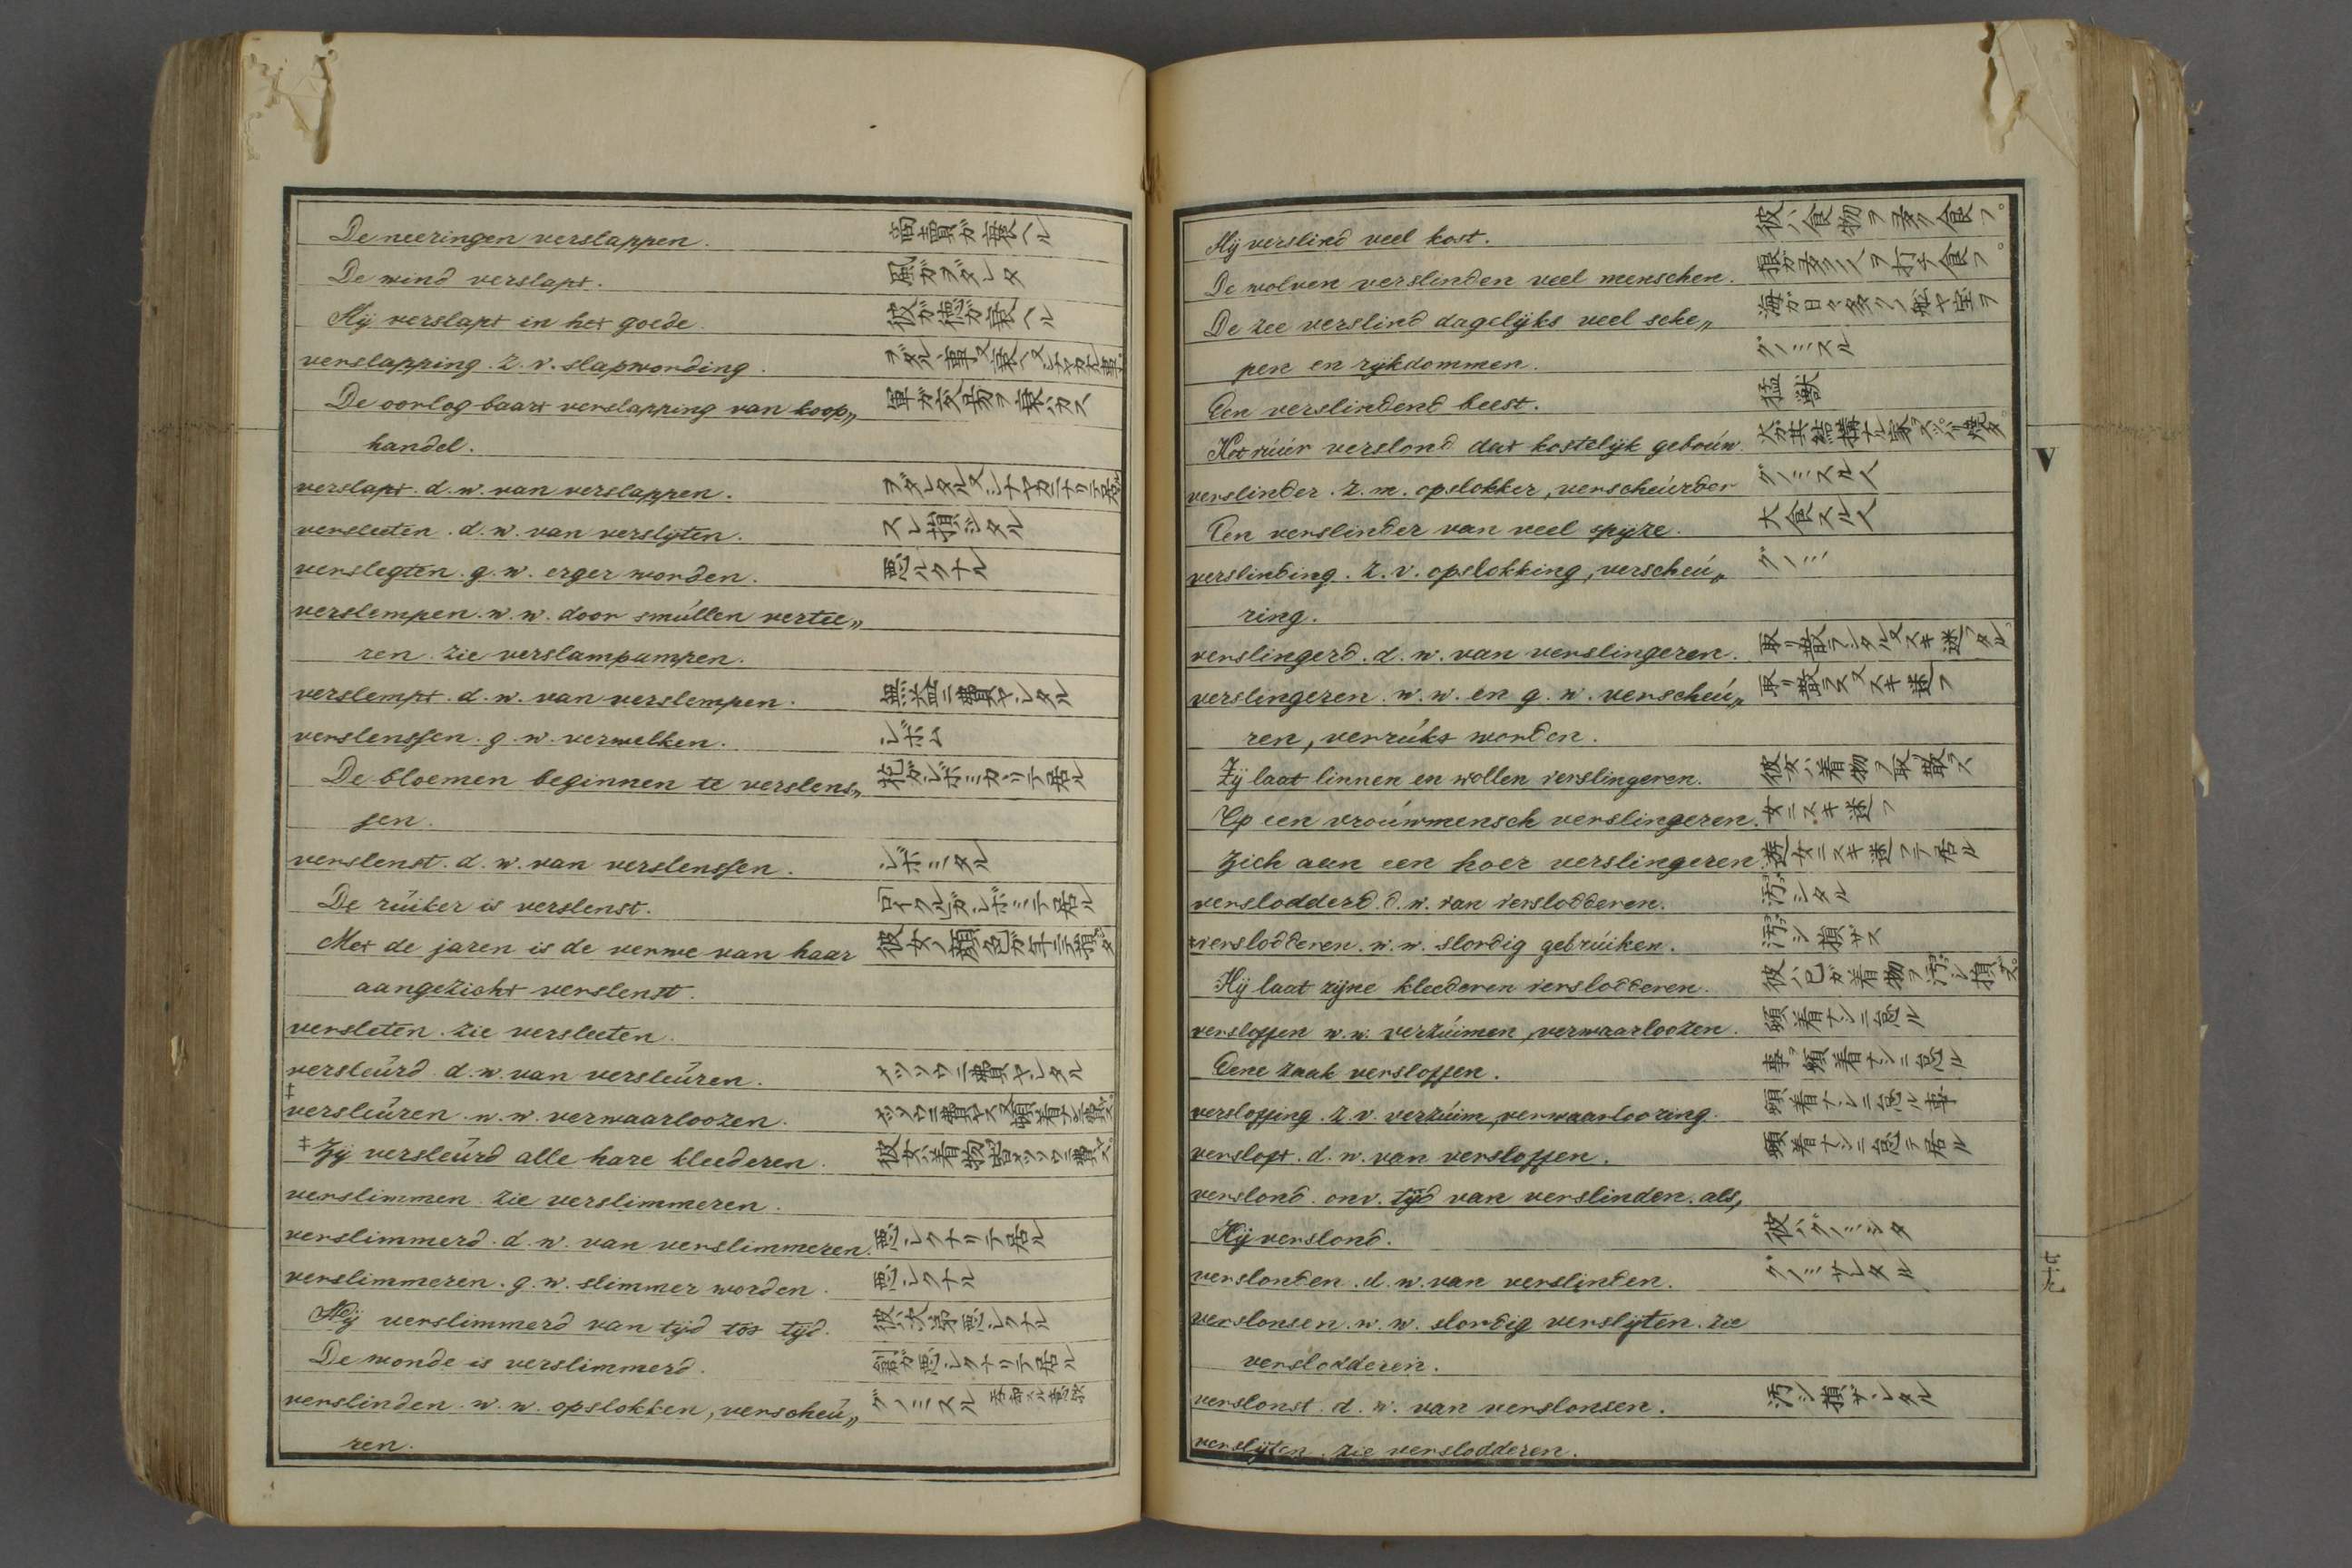 De neeringen verslappen. 商賣ガ衰ヘル
De wind verslapt. 風ガヲダレタ
Hij verslapt in het goede 彼ガ徳ガ衰ヘル
verslapping. z. v. slapwording.
De oorlog baart verslapping van koop„ 軍ガ交易ヲ衰ハカス
handel.
verslapt. d. w. van verslappen.
versleeten. d. w. van verslijten. スレ損ジタル
verslegten. g. w. erger worden. 悪ルクナル
verslempen. w. w. door smúllen vertee„
ren. zie verslampampen.
verslempt. d. w. van verslempen. 無益ニ費ヤシタル
verslenssen. g. w. verwelken. シボム
De bloemen beginnen te verslens„ 花ガシボミカヽリテ居ル
sen.
verslenst. d. w. van verslenssen. シボミタル
De rúiker is verslenst. シボミテ居ル
Met de jaren is de verwe van haar 彼女ノ顔色ガ年ニテ
aangezicht verslenst.
versleten. zie versleeten.
versleúrd. d. w. van versleúren. ニ費ヤシタル
‡versleúren. w. w. verwaarloozen.
‡Zij versleúrd alle hare kleederen. 彼女ハ着物皆
verslimmen. zie verslimmeren.
verslimmerd. d. w. van verslimmeren. 悪シクナリテ居ル
verslimmeren. g. w. slimmer worden. 悪シクナル
Hij verslimmerd van tijd tot tijd. 彼ハ次第悪シクナル
De wonde is verslimmerd. 創ガ悪シクナリテ居ル
verslinden. w. w. opslokken, verscheú„ グノミスル
ren.
Hij verslind veel kost. 彼ハ食物ヲ多ク食フ。
De wolven verslinden veel menschen. 狼ガ多ク人ヲ打チ食フ。
De zee verslind dagelijks veel sche„ 海ガ日々多クノ船ヤ宝ヲ
pen en rijkdommen. グノミスル
Een verslindend beest. 猛獣
Het vúúr verslond dat kostelijk geboúw.
verslinder. z. m. opslokker, verscheúrder グノミスル人
Een verslinder van veel spijze. 大食スル人
verslinding. z. v. opslokking, verscheú„ グノミ
ring.
verslingerd. d. w. van verslingeren. 取リ散ラシタル又スキ迷フタル
verslingeren. w. w. en g. w. verscheú„ 取リ散ラス又スキ迷フ
ren, verrúkt worden.
Zij laat linnen en wollen verslingeren. 彼女ハ着物ヲ取散ス
Op een vroúwmensch verslingeren. 女ニスキ迷フ
Zich aan een hoer verslingeren. 遊女ニスキ迷フテ居ル
verslodderd. d. w. van verslodderen. 汚シタル
verslodderen. w. w. slordig gebrúiken. 汚シ損ザス
Hij laat zijne kleederen verslodderen. 彼ハ己ガ着物ヲ汚シ損ザス。
versloffen w. w. verzúimen, verwaarloozen. 頓着ナシニ怠ル
Eene zaak versloffen. 事ヲ頓着ナシニ怠ル
versloffing. z. v. verzúim, verwaarloozing. 頓着ナシニ怠ル事
versloft. d. w. van versloffen. 頓着ナシニ怠テ居ル
verslond. onv. tijd van verslinden. als,
Hij verslond. 彼ハグノミシタ
verslonden. d. w. van verslinden. グノミサレタル
verslonsen. w. w. slordig verslijten. zie
verslodderen.
verslonst. d. w. van verslonsen. 汚シ損ザシタル
verslijten. zie verslodderen.
V
七十九